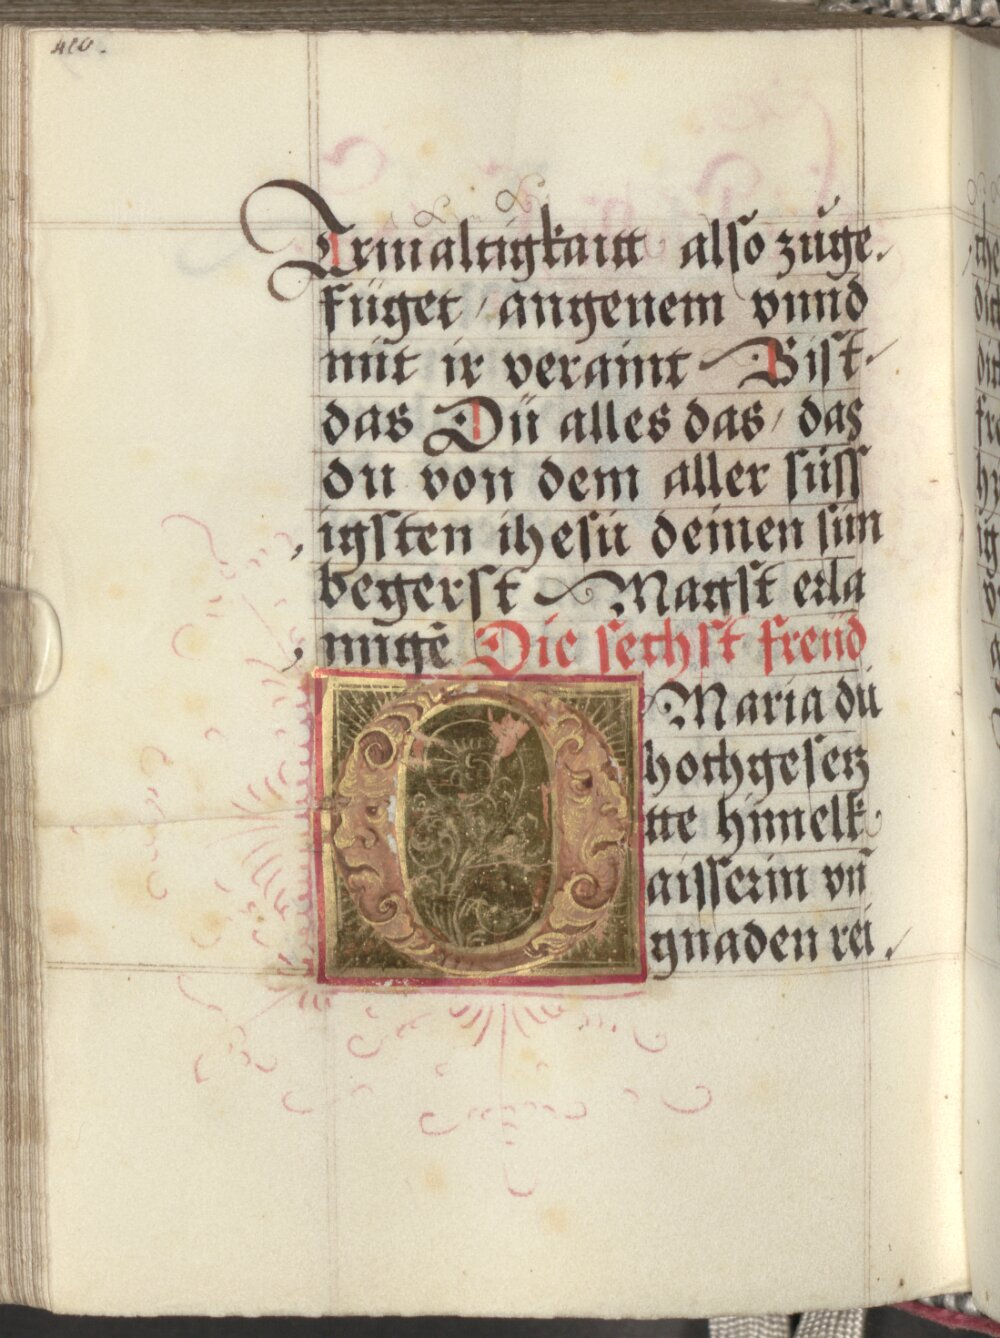 410.
Triualtigkaitt also zuge
füget / angenem vnnd
mit ir veraint Bist
das Dü alles das / das
du von dem aller süss
igsten ihesü deinen sün
begerst Magst erla
nngē Die sechst freüd
O Maria dü
hochgesetz
tte himelk
aisserin vn̄
gnaden rei